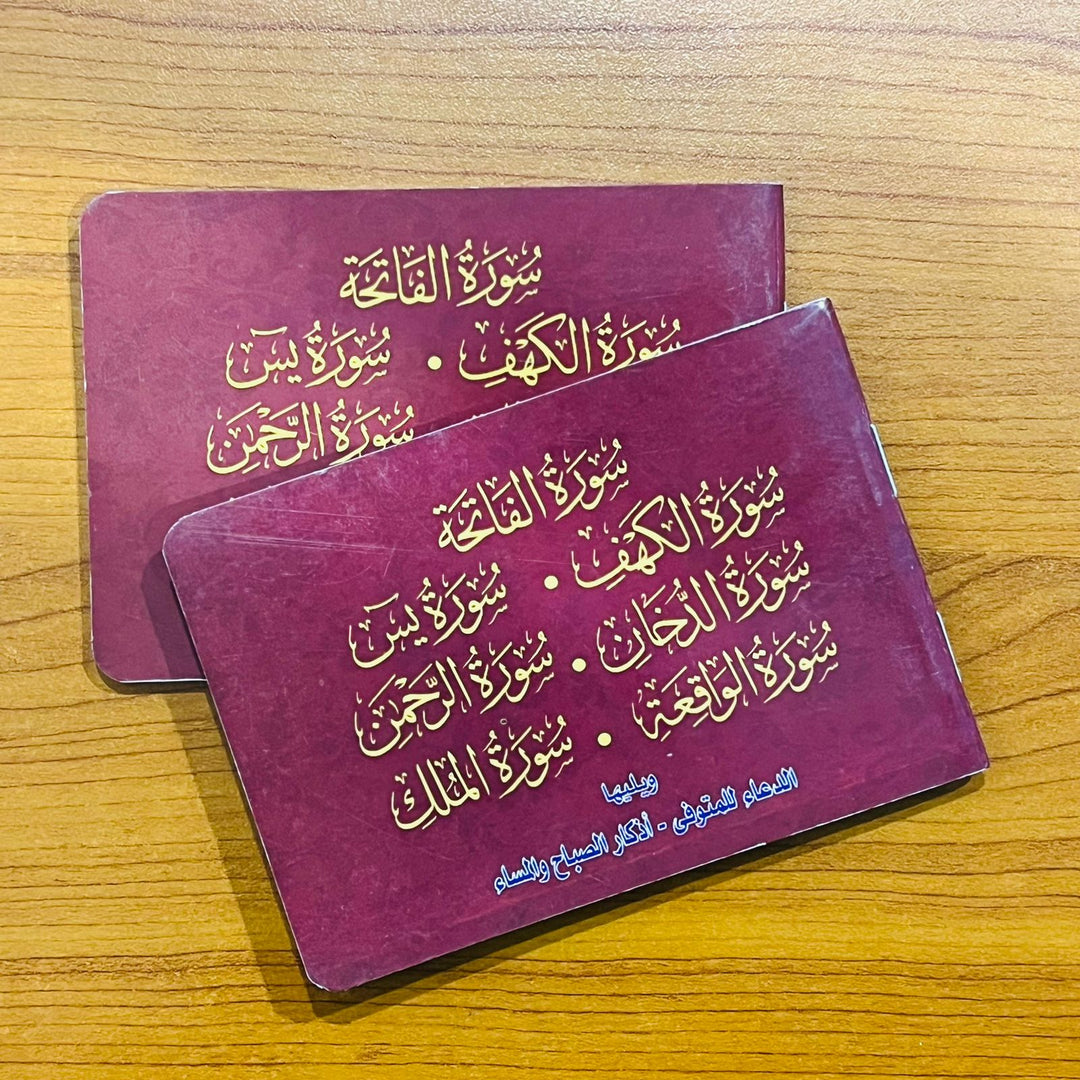 سُورَةُ الفَاتِحَة
سُورَةُ الكَهْفِ • سُورَةُ يسٓ
سُورَةُ الرَّحْمٰن
سُورَةُ الفَاتِحَة
سُورَةُ الكَهْفِ • سُورَةُ يسٓ
سُورَةُ الدُّخَانِ • سُورَةُ الرَّحْمٰنِ
سُورَةُ الوَاقِعَةِ • سُورَةُ المُلْكِ
ويليها
الدعاء للمتوفى - أذكار الصباح والمساء